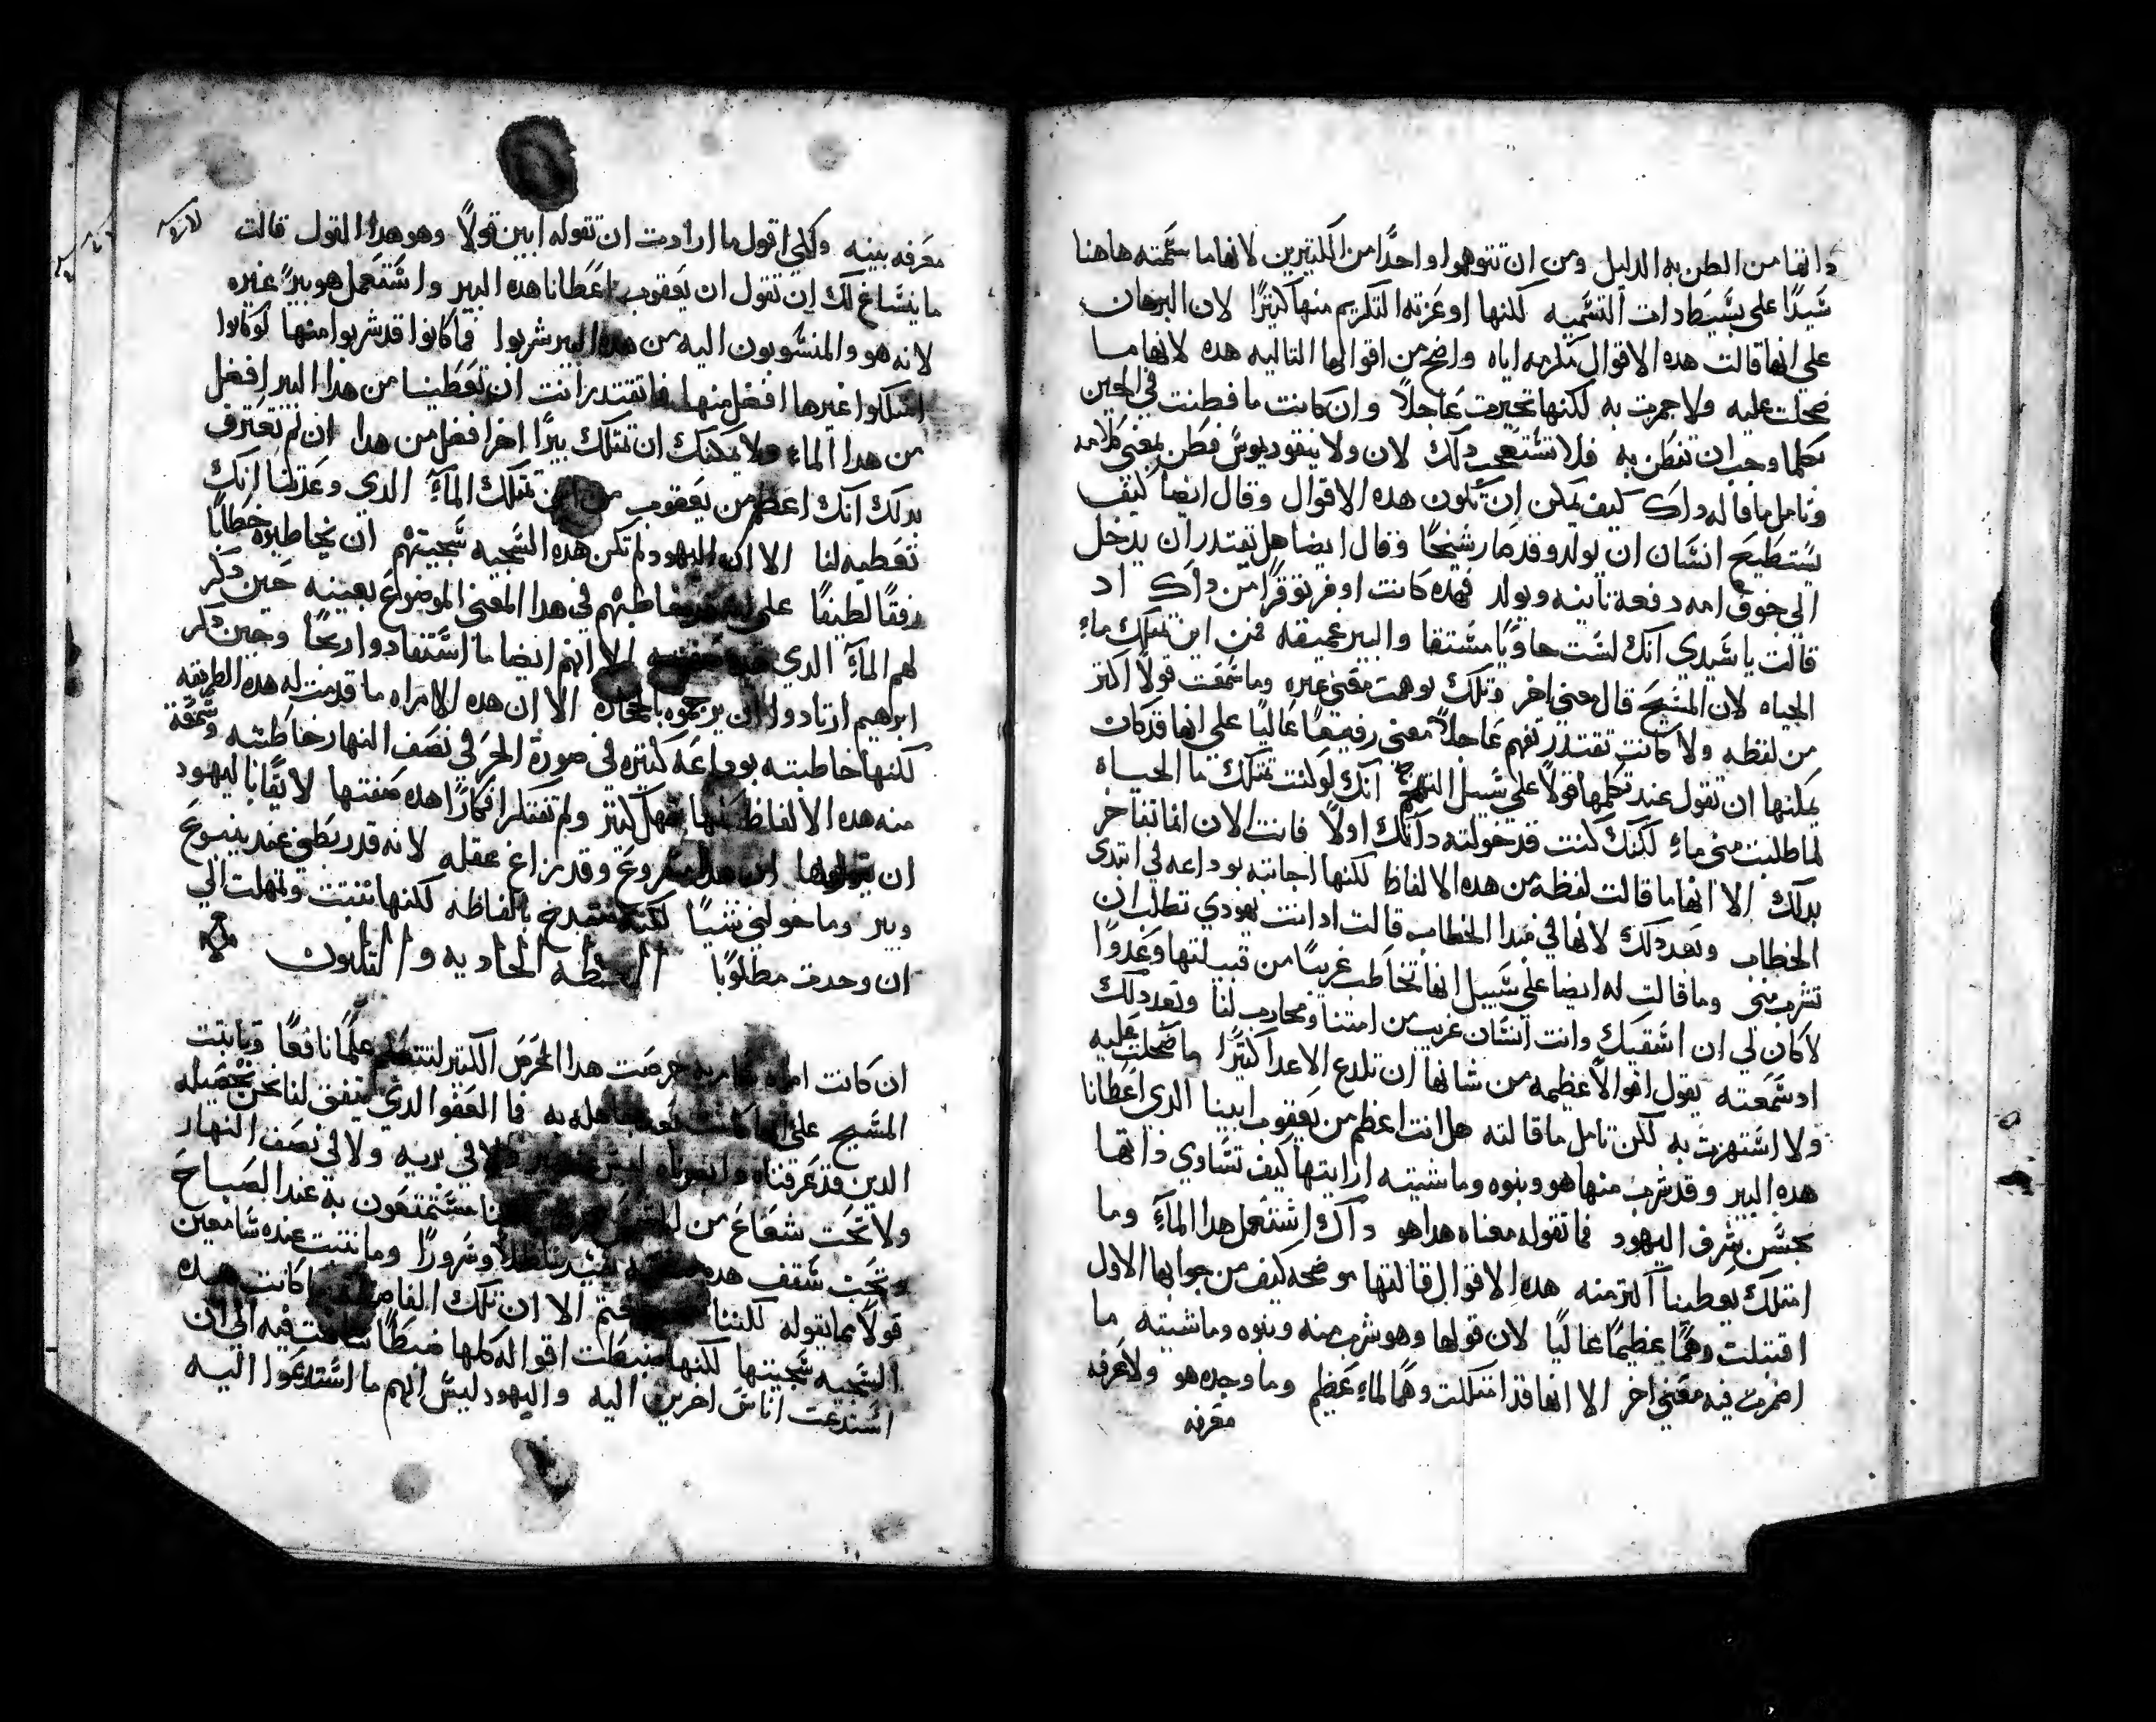 داتها من الظن به الدليل ومن ان تتوهموا واحدًا من الكتيرين لانها ما سمته هاهنا
سَيدًا على بسيط دات التسميه لكنها اوعزته التكريم منها كتيرًا لان البرهان
على انها قالت هده الاقوال مكرمه اياه واضح من اقوالها التاليه هده لانها ما
ضحكت عليه ولا جمرت به لكنها تحيرت عاجلاً وان كانت ما فطنت في الحين
بكلما وجب ان تفطن به فلا تستعجب دلك لان ولا نيقوديموس فطن بمعنى كلامه
وتامل ما قاله داك كيف يمكن ان تكون هده الاقوال وقال ايضا كيف
يستطيع انسان ان يولد وقد صار شيخًا وقال ايضا هل يقتدر ان يدخل
الى جوف امه دفعة تانيه ويولد فهده كانت اوفر توقرًا من داك اد
قالت يا سيدي انك لست حاويًا مستقا والبير عميقه فمن اين تمتلك ماء
الحياه لان المسيح قال معنى اخر وتلك توهمت معنى غيره وما سمعت قولاً اكتر
من لفظه ولا كانت تقتدر تفهم عاجلاً معنى رفيعًا عاليًا على انها قد كان
يمكنها ان تقول عند تكلمها قولاً على سبيل التهجم انك لو كنت تمتلك ما الحياه
لما طلبت مني ماء لكنك كنت قد خولته داتك اولاً فانت الان انما تفاخر
بدلك الا انها ما قالت لفظة من هده الالفاظ لكنها اجابته بوداعه في ابتدى
الخطاب وبعد دلك لانها في مبدا الخطاب قالت اد انت يهودي تطلب ان
تشرب مني وما قالت له ايضا على سبيل انها تخاطب غريبًا من قبيلتها وعدوًا
لا كان لي ان اسقيك وانت انسان غريب من امتنا ومحارب لنا وبعد دلك
اد سمعته يقول اقوالاً عظيمه من شانها ان تلدع الاعدا كتيرًا ما ضحكت عليه
ولا استهزت به لكن تامل ما قالته هل انت اعظم من يعقوب ابينا الدي اعطانا
هده البير وقد شرب منها هو وبنوه وماشيته ارايتها كيف تساوي داتها
بحسن شرف اليهود فما تقوله معناه هدا هو داك استعمل هدا الماء وما
امتلك يعطينا اكتر منه هده الاقوال قالتها موضحه كيف من جوابها الاول
اقتبلت وهمًا عظيمًا عاليًا لان قولها وهو شرب منه وبنوه وماشيته ما
اضمرت فيه معنى اخر الا انها قد امتلكت وهمًا لماءٍ عظيم وما وجده هو ولا عرفه
معرفه
معرفه بينه ولكي اقول ما ارادت ان تقوله ابين قولاً وهو هدا القول قالت
ما ينساغ لك ان تقول ان يعقوب اعطانا هده البير واستعمل هو بيرًا غيره
لانه هو والمنسوبون اليه من هده البير شربوا فما كانوا قد شربوا منها لو كانوا
امتلكوا غيرها افضل منها فما تقتدر انت ان تعطينا من هدا البير افضل
من هدا الماء ولا يمكنك ان تمتلك بيرًا اخر افضل من هدا ان لم تعترف
بدلك انك اعظم من يعقوب من اين تمتلك الماء الدي وعدتنا انك
تعطيه لنا الا ان اليهود لم تكن هده السجيه سجيتهم ان يخاطبوه خطابًا
رفقًا لطيفًا على خاطبهم في هدا المعنى الموضوع بعينه حين دكر
لهم الماء الدي الا انهم ايضا ما استفادوا ربحًا وحين دكر
ابرهيم ارتادوا ان يرجموه بالحجاره الا ان هده الامراه ما قدمت له هده الطريقه
لكنها خاطبته بوداعه كتيره في صورة الحر في نصف النهار خاطبته وسمعة
منه هده الالفاظ كلها بتمهل كتير ولم تفتكر افكارًا هده صفتها لايقًا باليهود
ان يقولوها ان هدا وقد زاغ عقله لانه قد ربطني عند ينبوع
وبير وما خولني شيًا لكنه يتمدح بالفاظه لكنها تتبتت وتمهلت الى
ان وجدت مطلوبًا العظه الحاديه والتلتون
ان كانت امراه سامريه حرصت هدا الحرص الكتير لتتعلم علمًا نافعًا وتابتت
المسيح على انها كانت بعد جاهله به فما العفو الدي يتفق لنا نحن تحصيله
الدين قد عرفناه ولا في بريه ولا في نصف النهار
ولا تحت شعاع من مستمتعون به عند الصباح
وتحت سقف هده ظلاً وسرورًا وما نتبت عنده سامعين
قولاً مما يقوله لكننا الا ان تلك الفاضله ما كانت هده
السجيه سجيتها لكنها ضبطت اقواله كلها ضبطًا فيه الى ان
استدعت اناس اخرين اليه واليهود ليس انهم ما استدعوا اليه